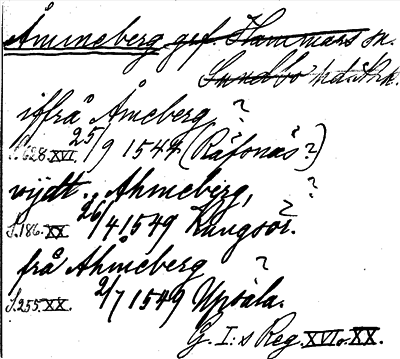 Åmmeberg gef. Hammars sn.
Sundbo hd. Örk.
iffrå Åmeberg, ?
S. 628. XVI. 25/9 1544 (Råfonäs?)
wijdt .. Ahmeberg, ?
S. 186. XX. 26/4 1549 Kungsör. ?
frå Ahmeberg ?
S. 255. XX. 2/7 1549 Upsala.
G. I:s Reg. XVI o. XX.